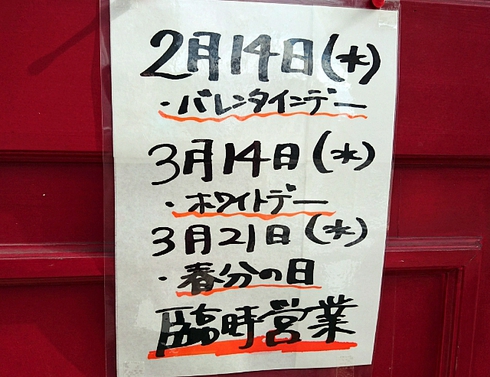 2月14日(水)
・バレンタインデー
3月14日(水)
・ホワイトデー
3月21日(水)
・春分の日
臨時営業